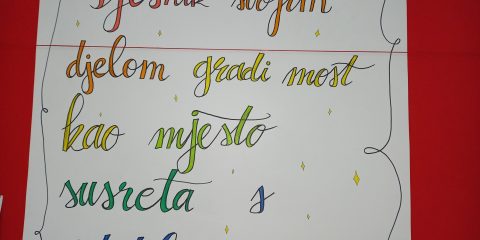 pjesnik svojim
djelom gradi most
kao mjesto
susreta s